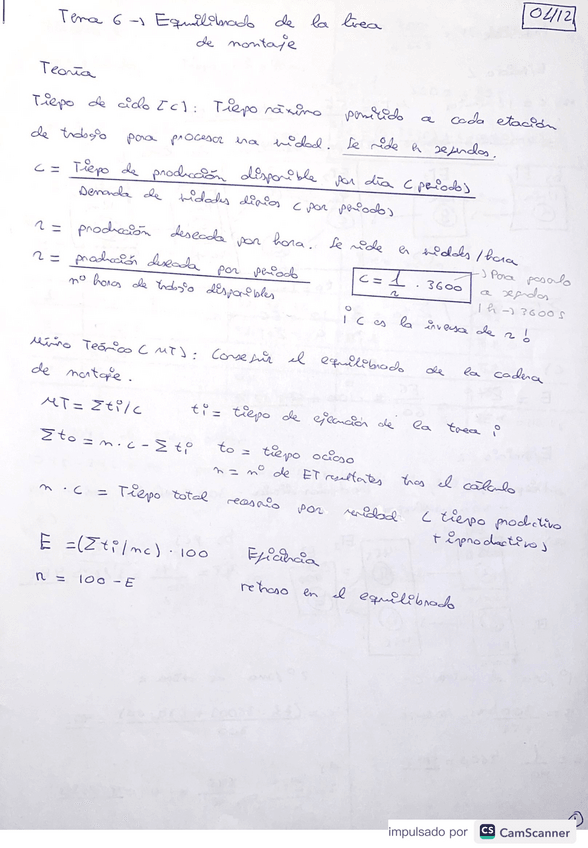 Tema 6 → Equilibrado de la línea
de montaje
04/12
Teoría
Tiempo de ciclo [C]: Tiempo máximo permitido a cada estación
de trabajo para procesar una unidad. Se mide en segundos.
C = Tiempo de producción disponible por día (periodo)
Demanda de unidades diarias (por periodo)
r = producción deseada por hora. Se mide en unidades/hora
r = producción deseada por periodo
nº horas de trabajo disponibles
C = 1/r · 3600
→ Para pasarlo
a segundos
1 hora → 3600 s
¡ C es la inversa de r !
Mínimo Teórico (MT): Conseguir el equilibrado de la cadena
de montaje.
MT = Σti/C ti = tiempo de ejecución de la tarea i
Σto = n·c - Σti to = tiempo ocioso
n = nº de ET resultantes tras el cálculo
n · c = Tiempo total necesario por unidad (tiempo productivo
+ improductivo)
E = (Σti/nc) · 100 Eficiencia
r = 100 - E retraso en el equilibrado
impulsado por CS CamScanner